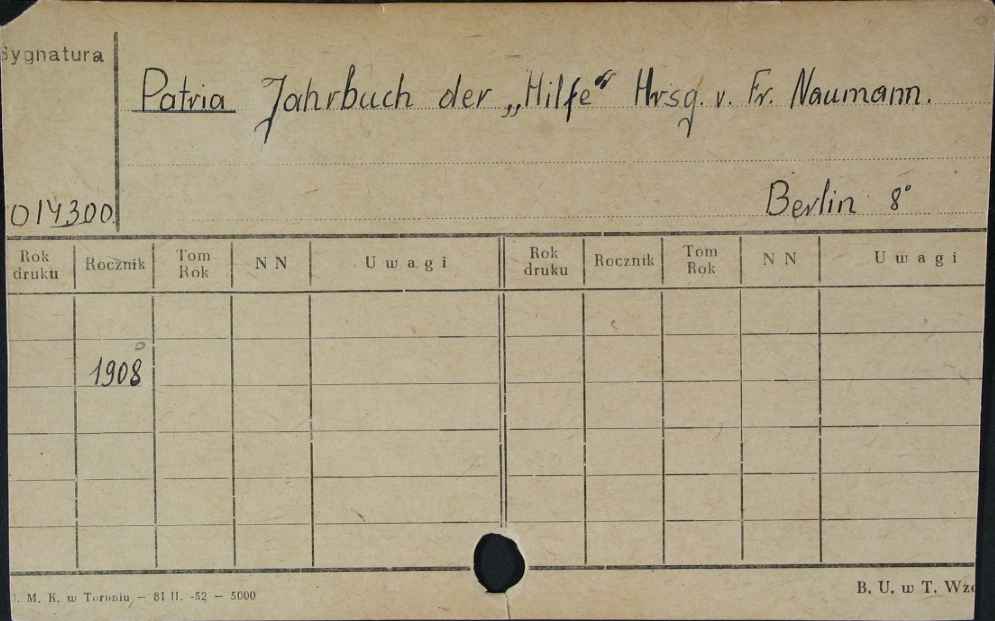 Sygnatura
Patria Jahrbuch der „Hilfe" Hrsg. v. Fr. Naumann.
Berlin 8°
014300
Rok druku Rocznik Tom Rok NN Uwagi Rok druku Rocznik Tom Rok NN Uwagi
1908
M. K. w Toruniu, — 81 II. -52 — 5000
B. U. w T.